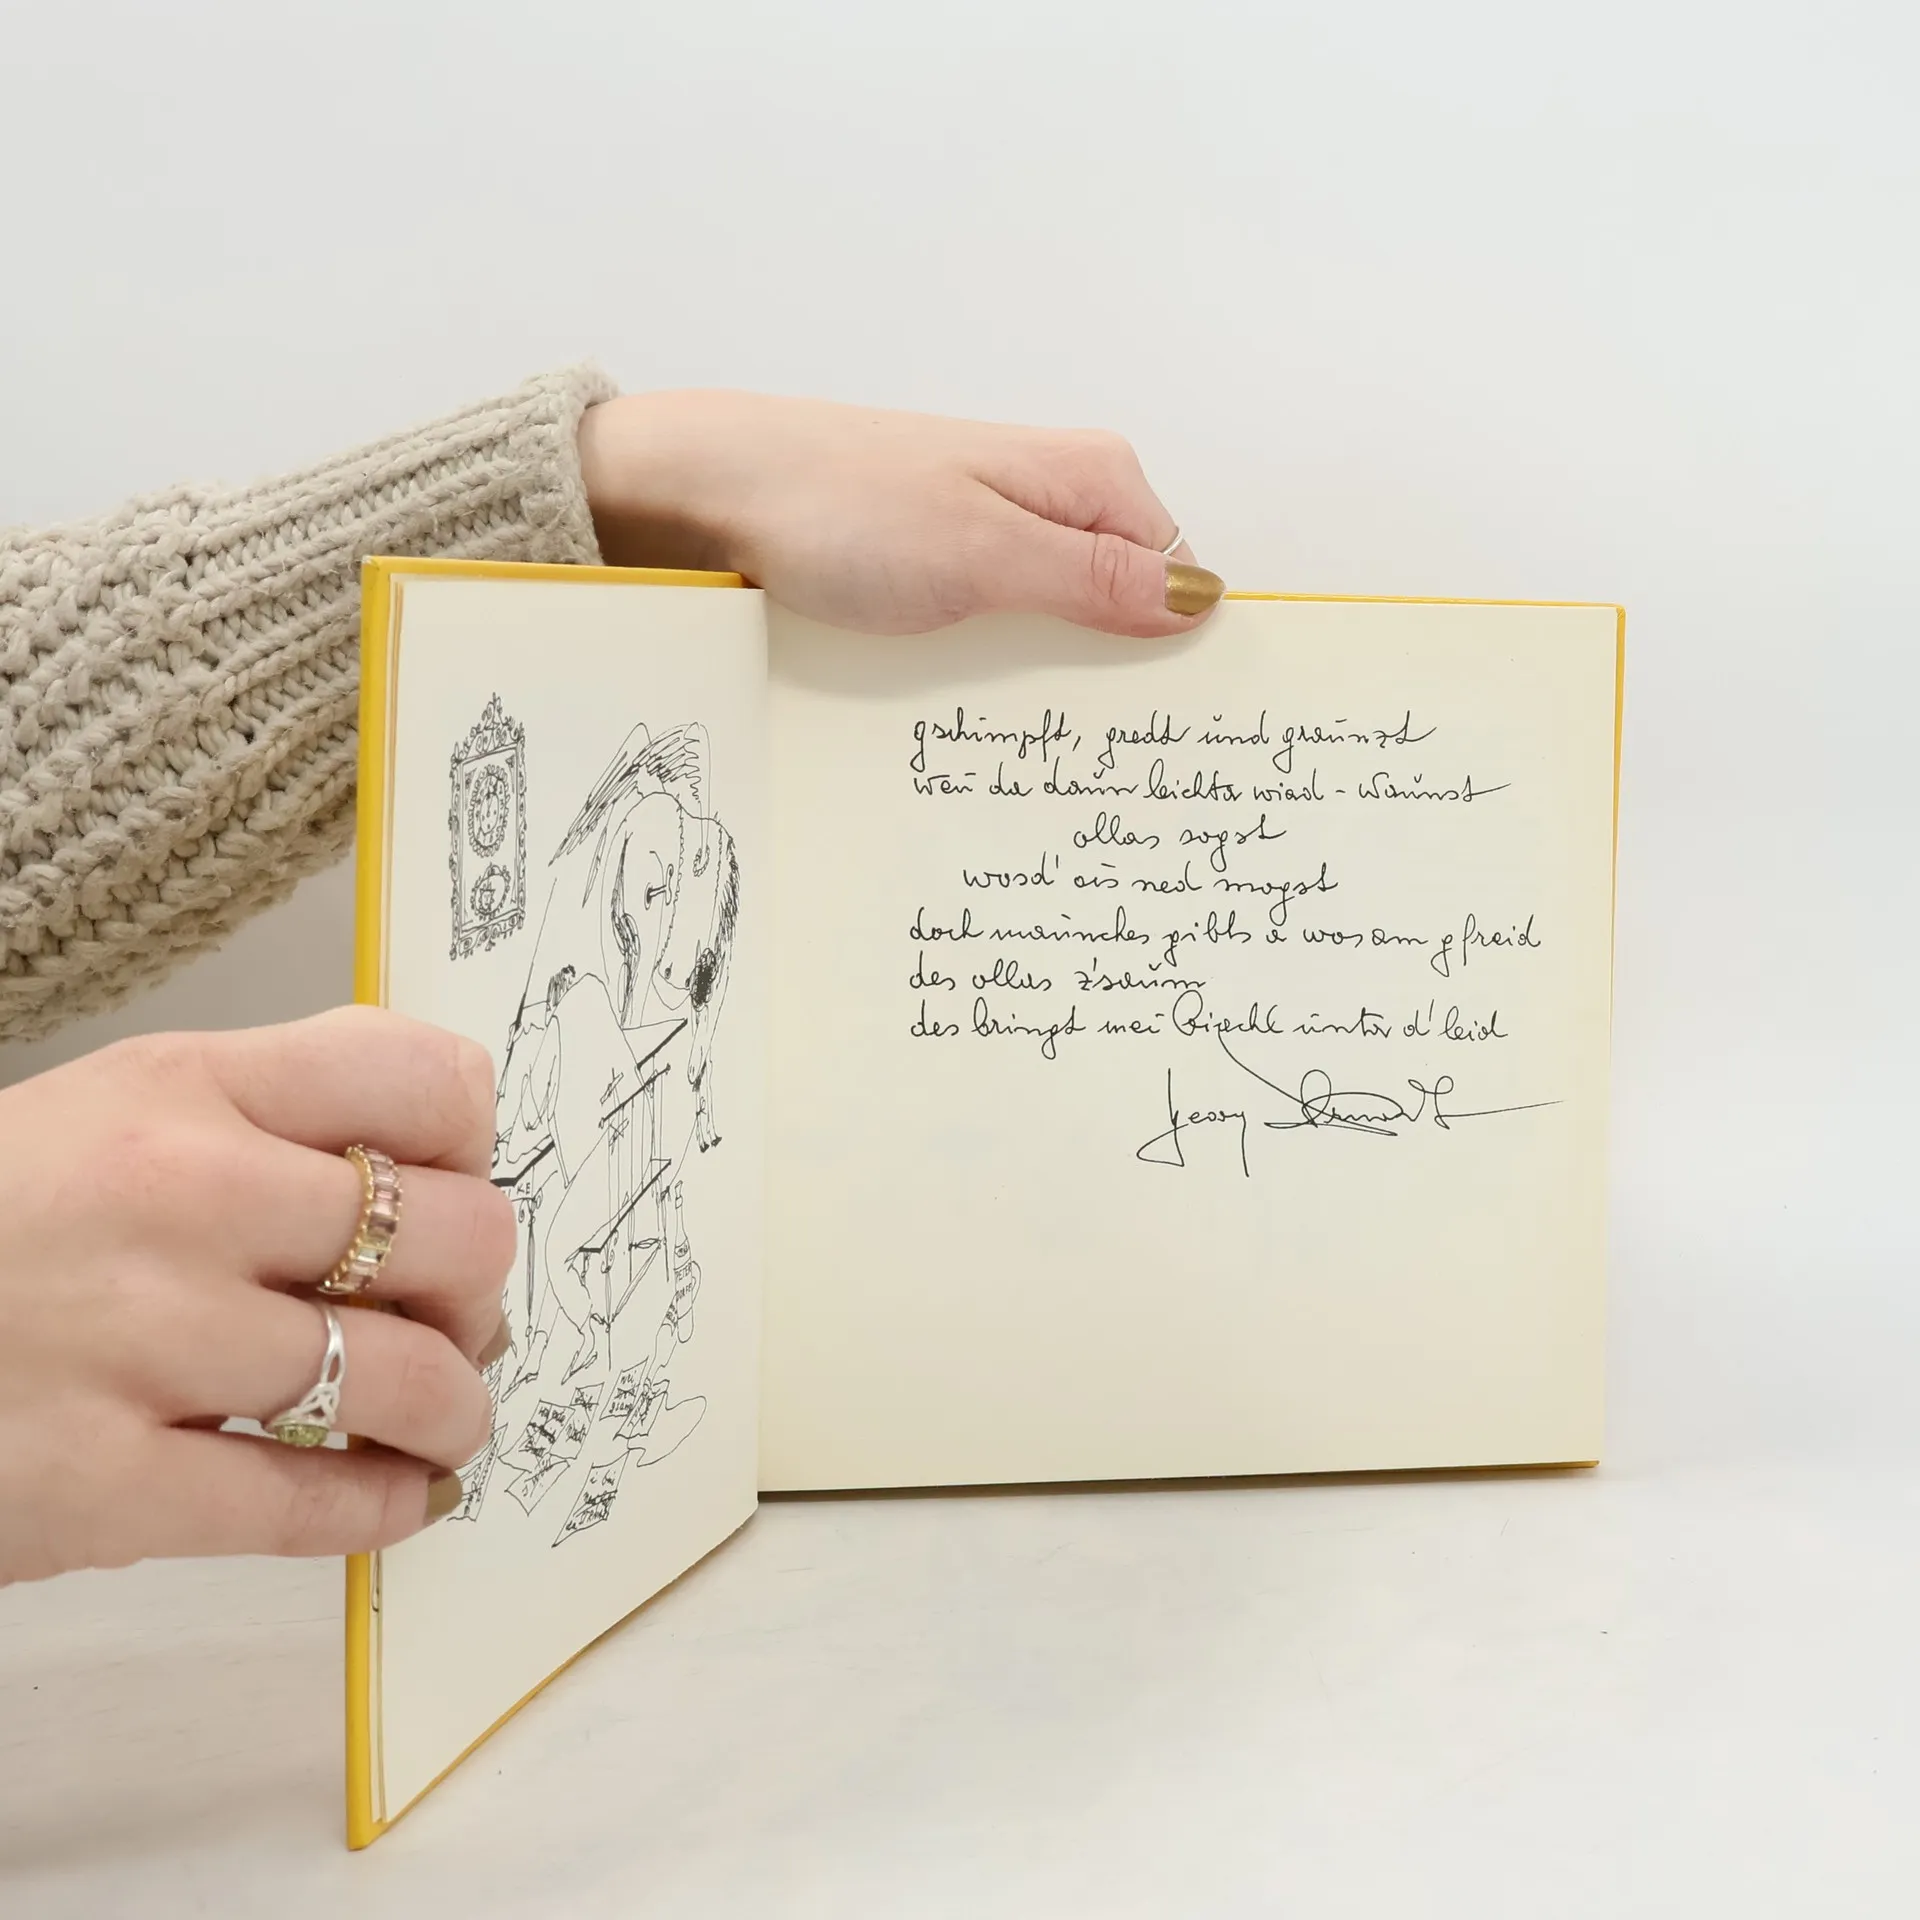 KE
PETER
DORFF
nei
gschimpft, gredt und graunzt
weu da daun leichta wiad - waunst
ollas sogst
wosd' ois ned mogst
doch maunches gibts a wos am gfreid
des ollas z'saum
des bringt mei Biachl unta d' leid
Georg